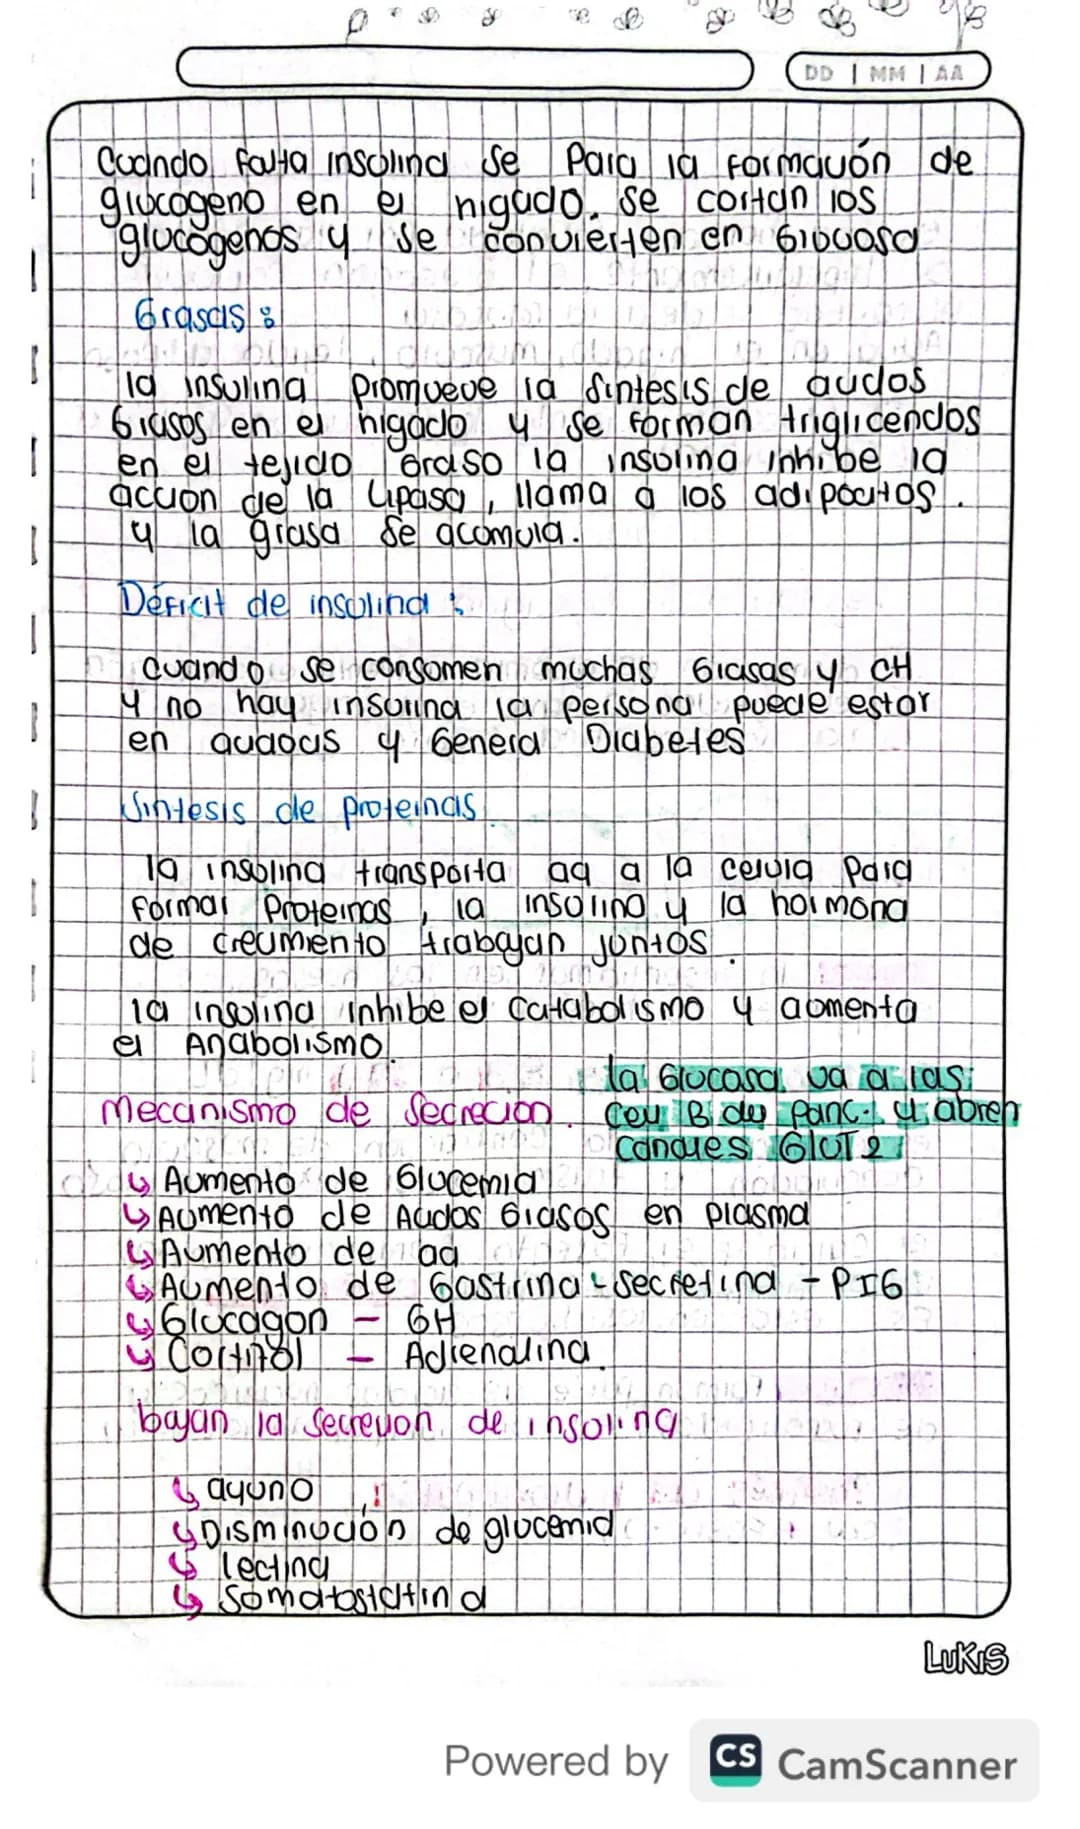 DD | MM | AA
Cuando falta insulina se para la formación de
glucogeno en el higado. Se cortan los
glucógenos y se convierten en Glucosa
Grasas:
la insulina promueve la sintesis de acidos
Grasos en el higado y se forman trigliceridos
en el tejido Graso la insulina inhibe la
accion de la Lipasa, llama a los adipocitos.
y la grasa se acomula.
Déficit de insulina:
cuando se consomen muchas Grasas y CH
y no hay insulina la persona puede estar
en
y Genera Diabetes
Sintesis de proteinas.
la insulina transporta aa a la celula para
formar Proteinas, la insulina y la hormona
de crecimiento trabajan juntos.
la insulina inhibe el Catabolismo y aumenta
el Anabolismo.
la Glucosa va a las
Mecanismo de Secrecion. Cel B del Panc. y abren
canales GLUT2
↳ Aumento de Glucemia
↳ Aumento de Acidos Grasos en plasma
↳ Aumento de aa
↳ Aumento de Gastrina - secretina - PIG
↳ Glucagon - GH
↳ Cortizol - Adrenalina.
bajan la Secrecion de insolina
↳ ayuno
↳ Disminución de glucemia
↳ lectina
↳ Somatostatina
LUKIS
Powered by CS CamScanner